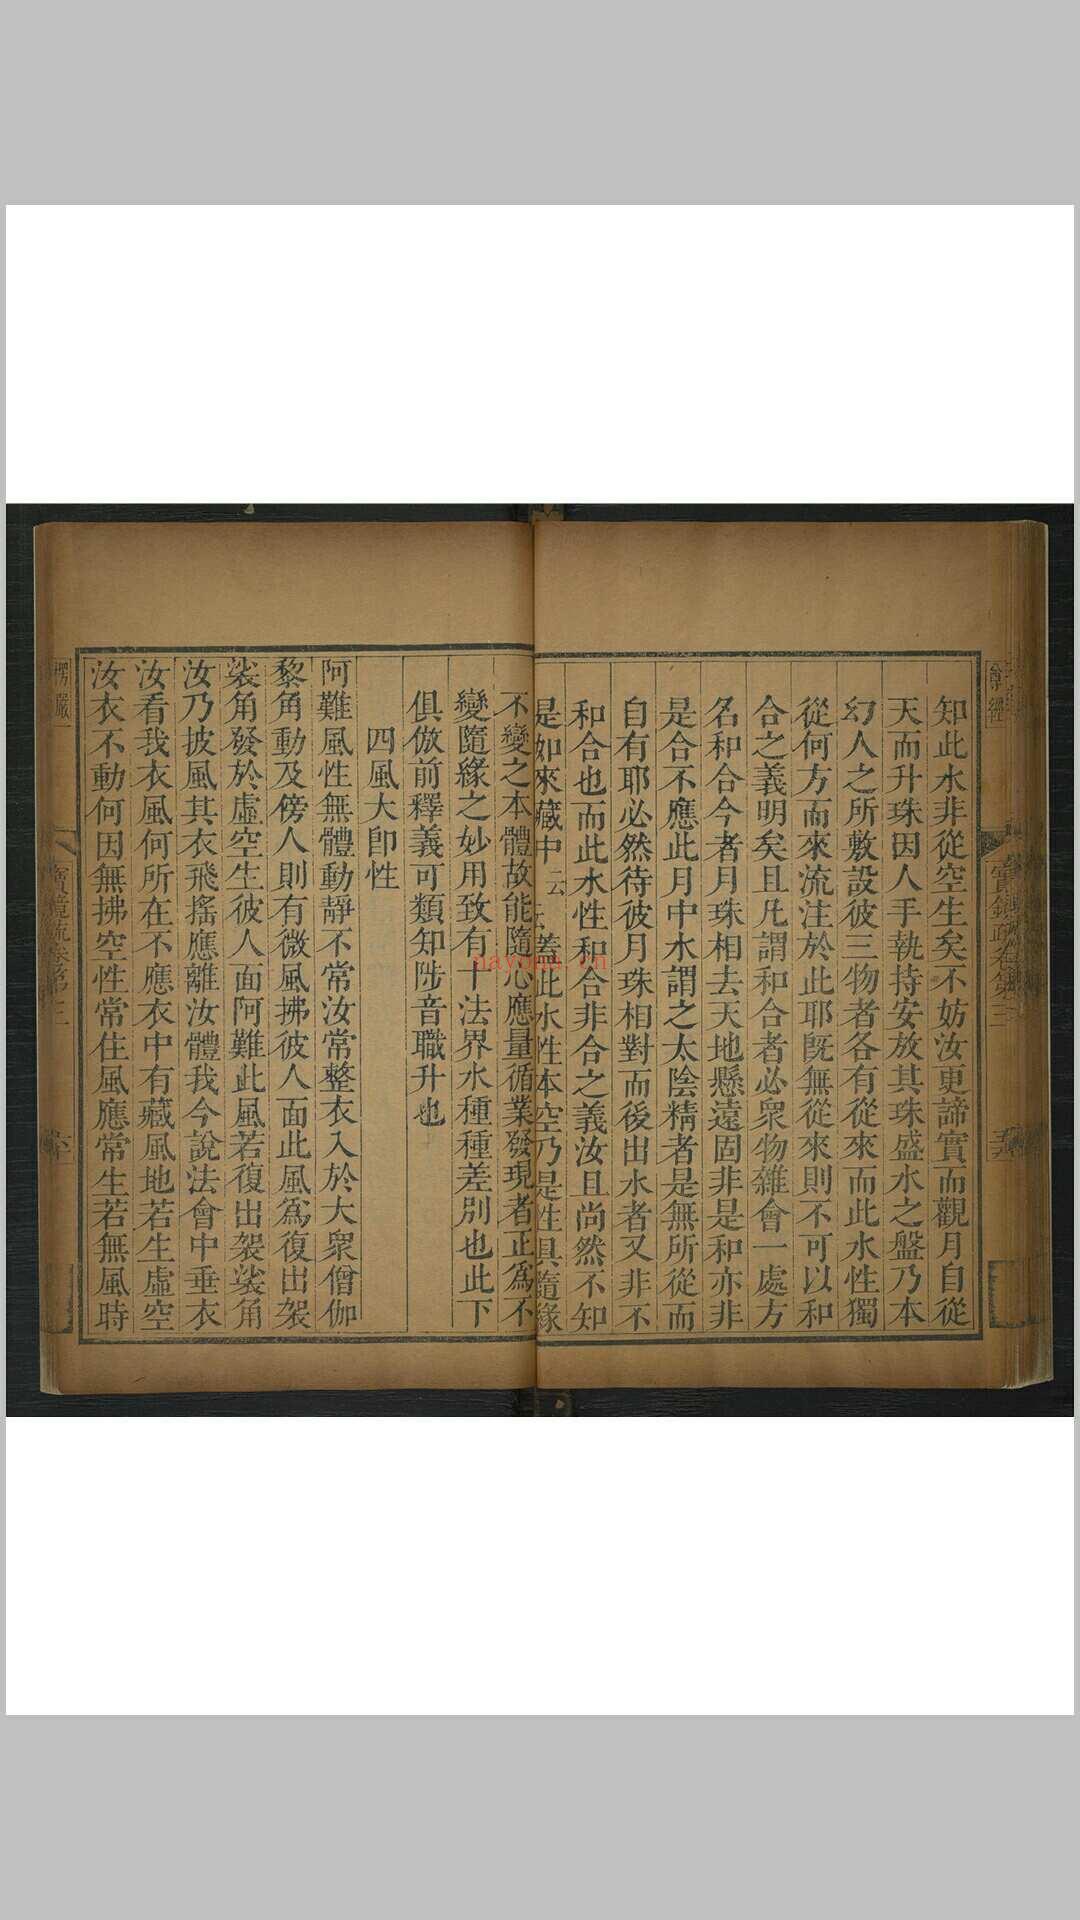 知此水非從空生矣不妨汝更諦實而觀月自從
天而升珠因人手執持安放其珠盛水之盤乃本
幻人之所敷設彼三物者各有從來而此水性獨
從何方而來流注於此耶旣無從來則不可以和
合之義明矣且凡謂和合者必衆物雜會一處方
名和合今者月珠相去天地懸遠固非是和亦非
是合不應此月中水謂之太陰精者是無所從而
自有耶必然待彼月珠相對而後出水者又非不
和合也而此水性和合非合之義汝且尚然不知
是如來藏中云云蓋此水性本空乃是性具隨緣
不變之本體故能隨心應量循業發現者正爲不
變隨緣之妙用致有十法界水種種差別也此下
俱倣前釋義可類知陟音職升也
四風大卽性
阿難風性無體動靜不常汝常整衣入於大衆僧伽
黎角動及傍人則有微風拂彼人面此風爲復出袈
裟角發於虛空生彼人面阿難此風若復出袈裟角
汝乃披風其衣飛搖應離汝體我今說法會中垂衣
汝看我衣風何所在不應衣中有藏風地若生虛空
汝衣不動何因無拂空性常住風應常生若無風時
楞嚴
寶鏡疏卷第三
六
寶鏡疏卷第三
nayona.cn